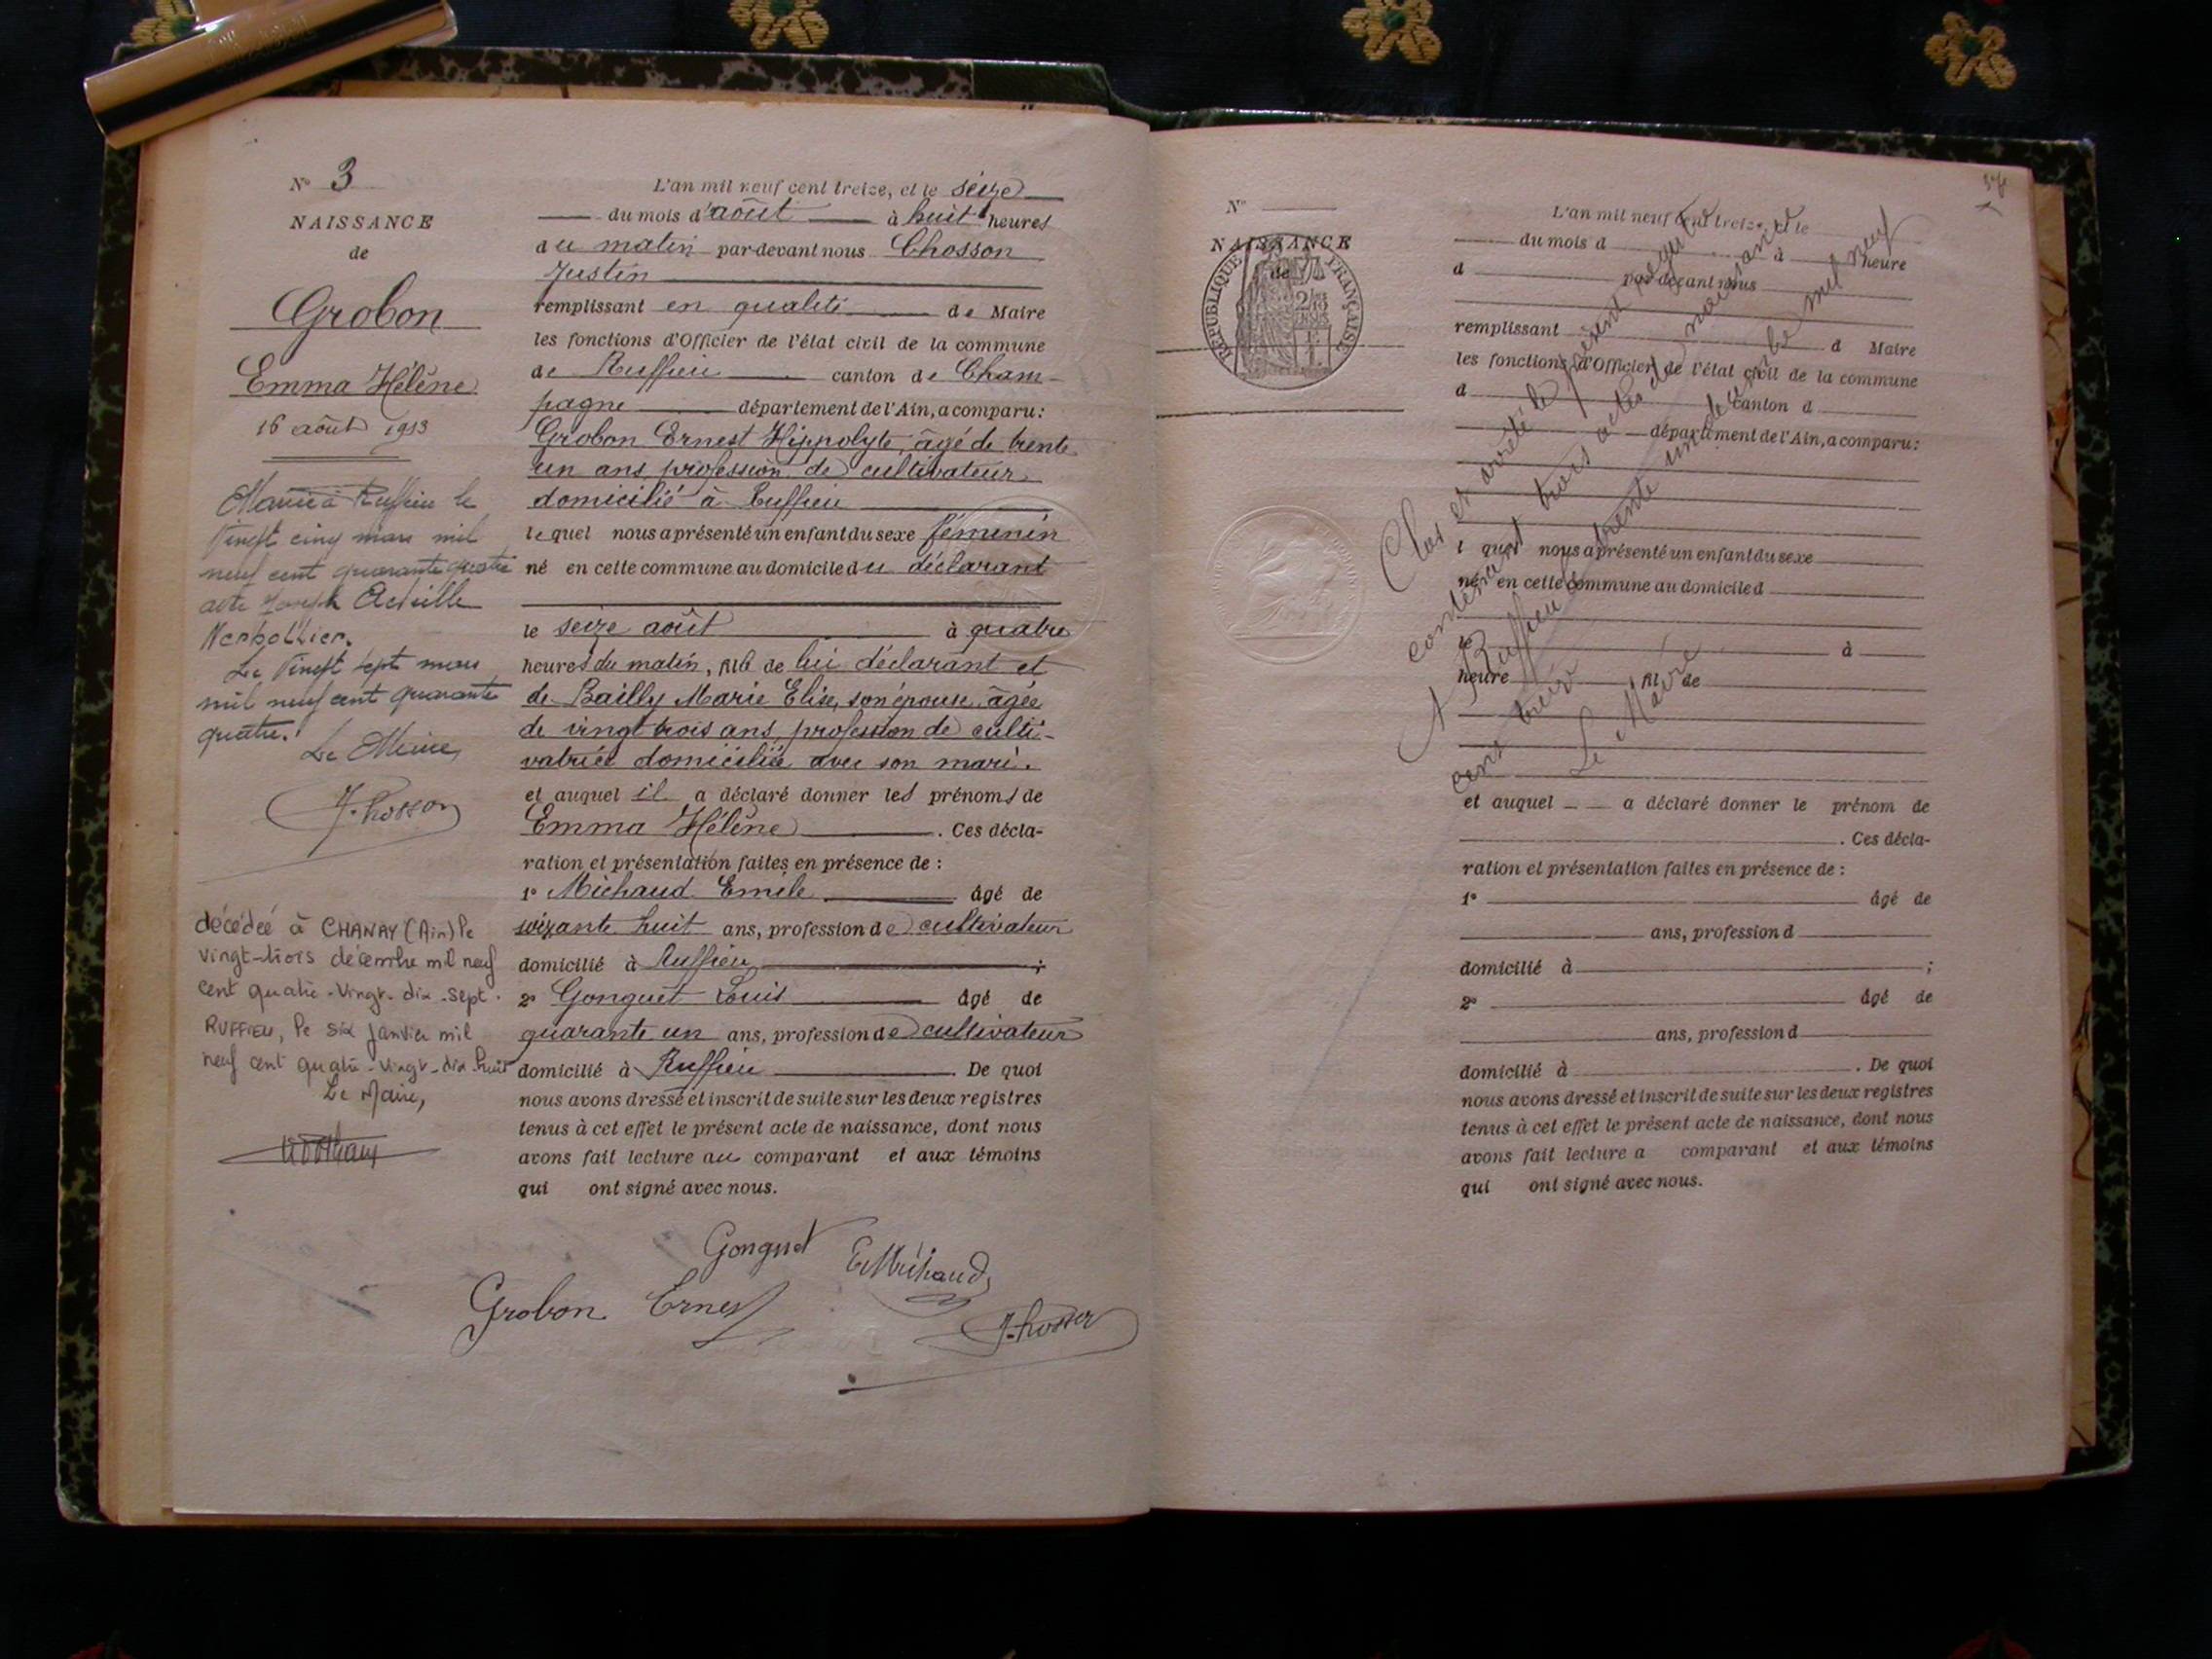 N° 3
NAISSANCE
de
Grobon
Emma Hélène
16 août 1913
Mariée à Ruffieu le
Vingt cinq mars mil
neuf cent quarante quatre
avec Joseph Achille
Le Vingt sept mars
mil neuf cent quarante
quatre.
Le Maire,
J. Chosson
décédée à CHANAY (Ain) le
vingt-trois décembre mil neuf
cent quatre-vingt-dix-sept.
RUFFIEU, le six janvier mil
neuf cent quatre-vingt-dix huit
Le Maire,
L'an mil neuf cent treize, et le seize
du mois d'août à huit heures
du matin par-devant nous Chosson
Justin
remplissant en qualité de Maire
les fonctions d'Officier de l'état civil de la commune
de Ruffieu canton de Cham-
pagne département de l'Ain, a comparu :
Grobon Ernest Hippolyte, âgé de trente
un ans, profession de cultivateur
domicilié à Ruffieu
lequel nous a présenté un enfant du sexe féminin
né en cette commune au domicile du déclarant
le seize août à quatre
heures du matin, fille de lui déclarant et
de Bailly Marie Elise, son épouse, âgée
de vingt trois ans, profession de culti-
vatrice domiciliée avec son mari.
et auquel il a déclaré donner les prénoms de
Emma Hélène . Ces décla-
ration et présentation faites en présence de :
1° Michaud Emile âgé de
soixante huit ans, profession de cultivateur
domicilié à Ruffieu ;
2° Gonguet Louis âgé de
quarante un ans, profession de cultivateur
domicilié à Ruffieu . De quoi
nous avons dressé et inscrit de suite sur les deux registres
tenus à cet effet le présent acte de naissance, dont nous
avons fait lecture au comparant et aux témoins
qui ont signé avec nous.
Gonguet E Michaud
Grobon Ernest J. Chosson
N°
NAISSANCE
de
RÉPUBLIQUE FRANÇAISE
L'an mil neuf cent treize, et le
du mois d à heure
d par-devant nous
remplissant d Maire
les fonctions d'Officier de l'état civil de la commune
d canton d
département de l'Ain, a comparu :
l quel nous a présenté un enfant du sexe
né en cette commune au domicile d
le à
heure fil de
et auquel a déclaré donner le prénom de
. Ces décla-
ration et présentation faites en présence de :
1° âgé de
ans, profession d
domicilié à ;
2° âgé de
ans, profession d
domicilié à . De quoi
nous avons dressé et inscrit de suite sur les deux registres
tenus à cet effet le présent acte de naissance, dont nous
avons fait lecture a comparant et aux témoins
qui ont signé avec nous.
Clos et arrêté le présent registre
contenant trois actes de naissance
A Ruffieu le trente un décembre mil neuf
cent treize
Le Maire